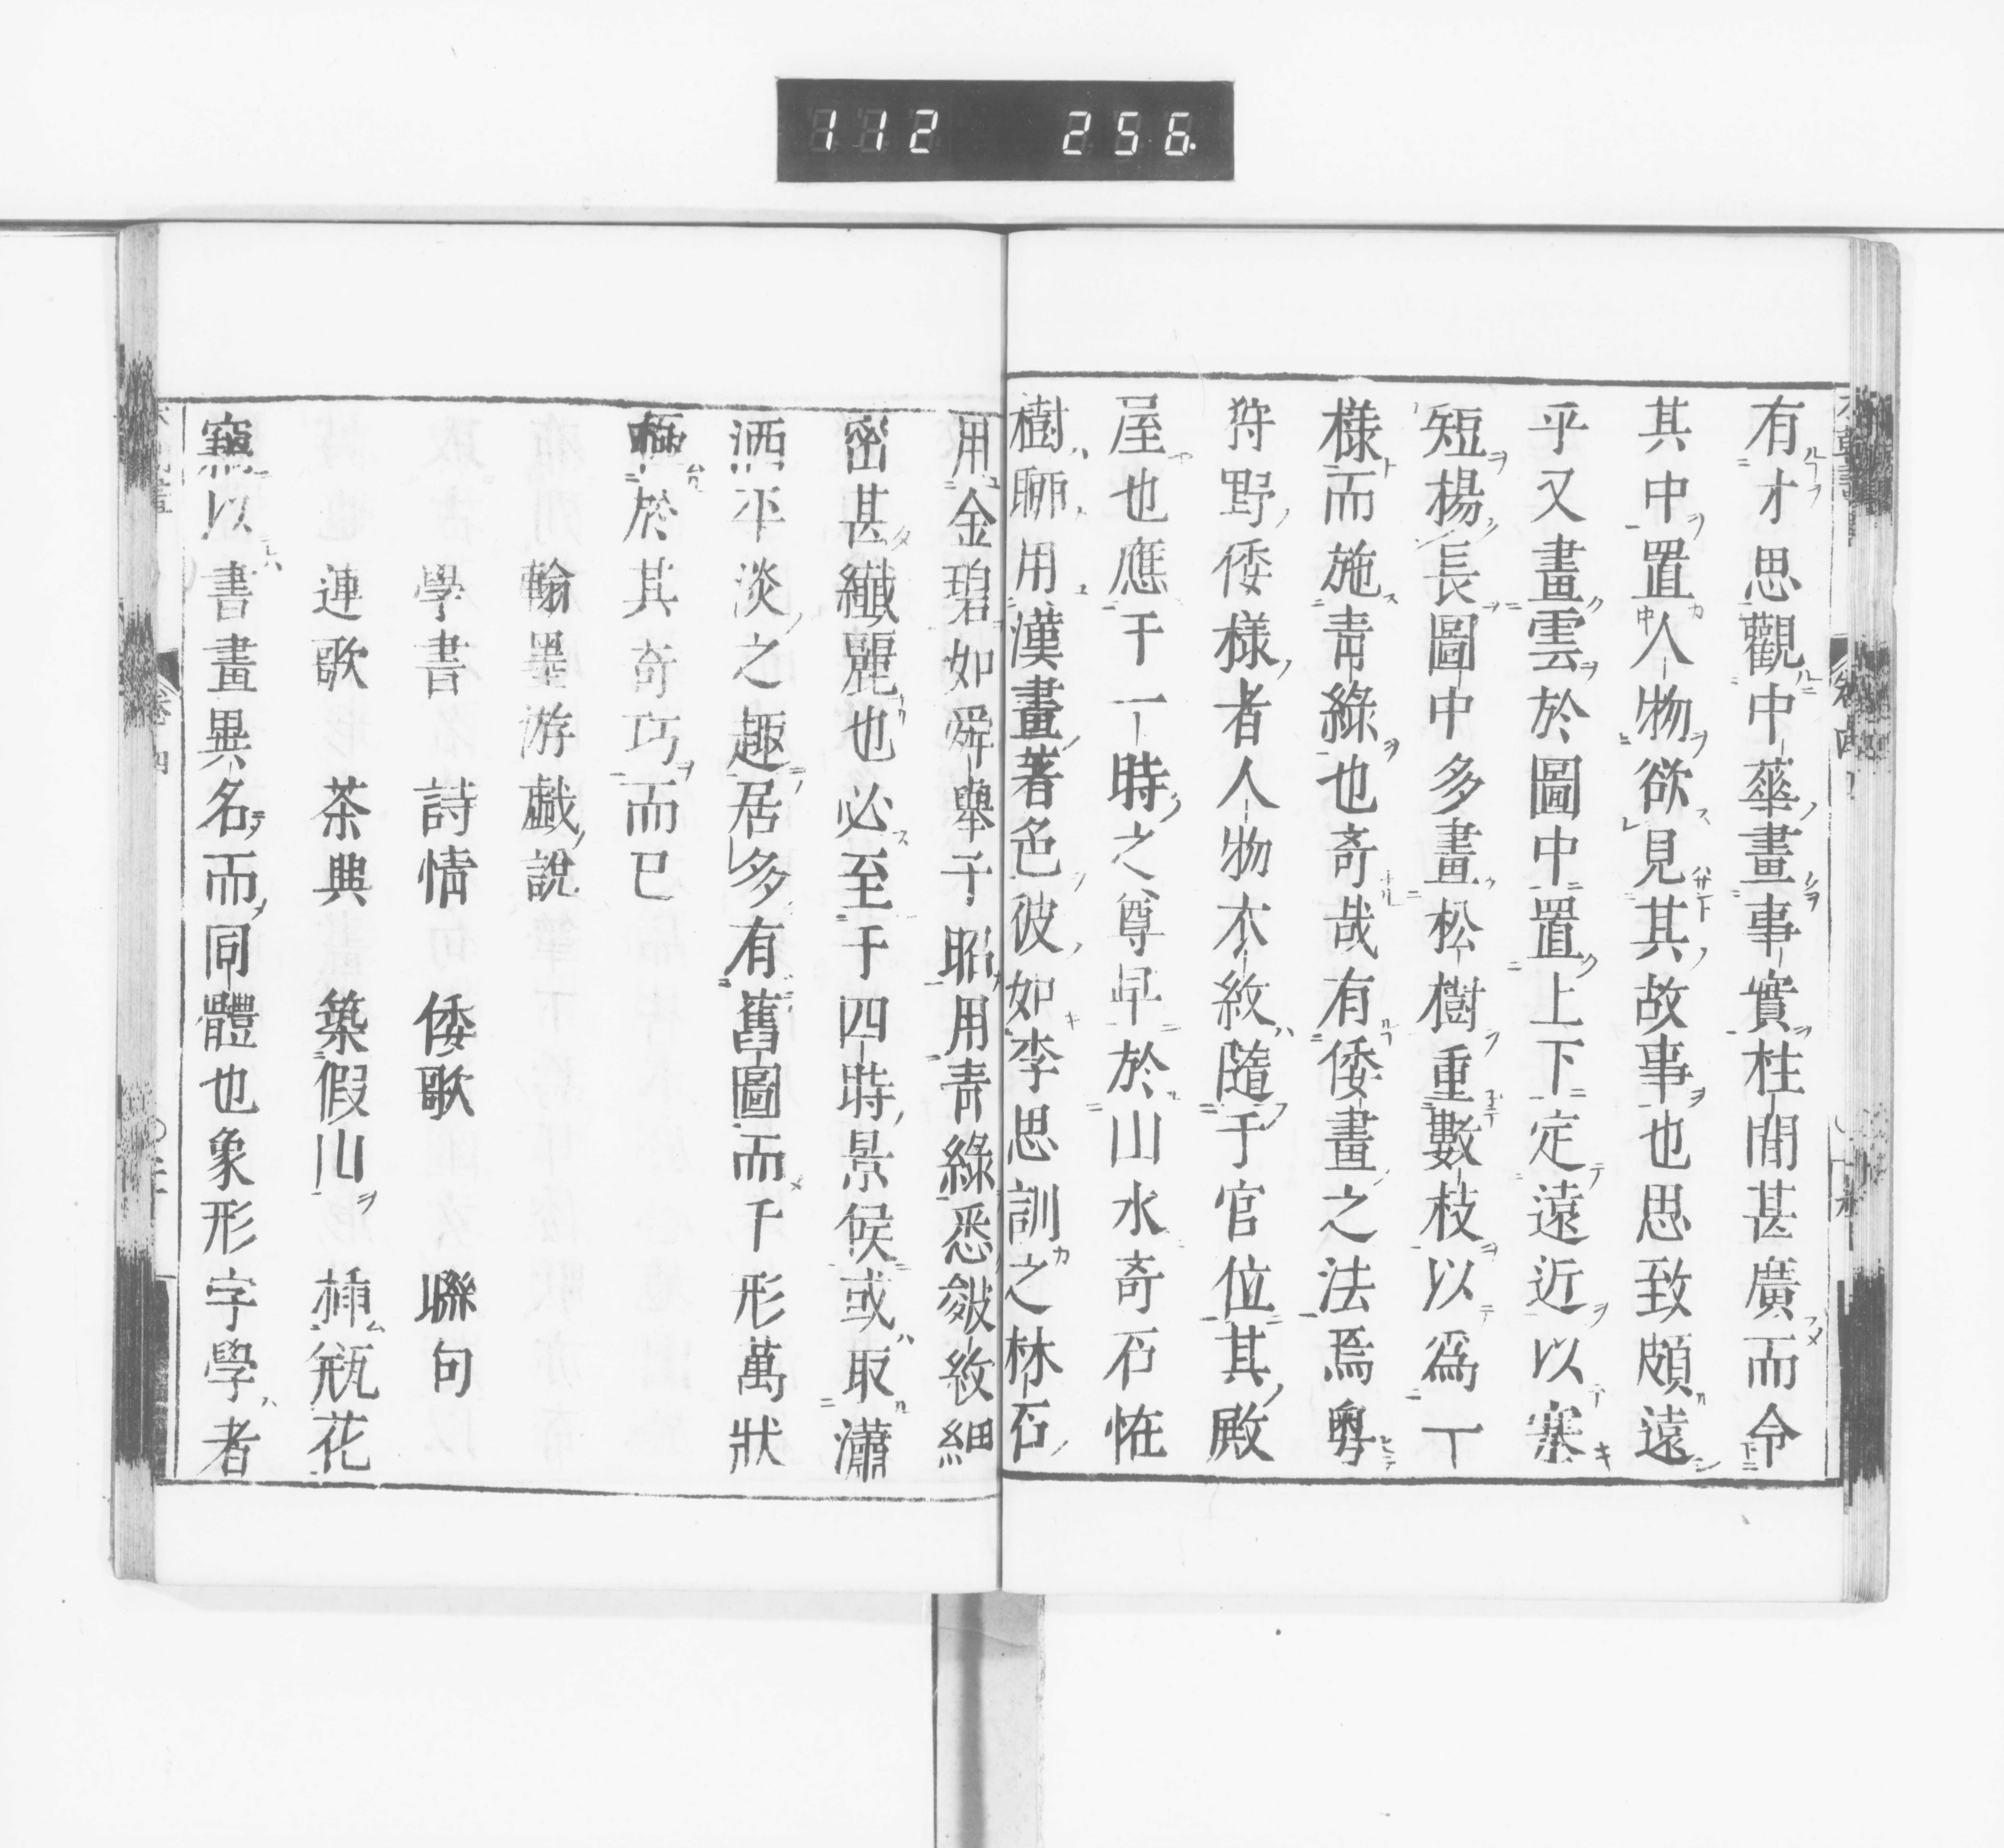 112 256.
有才思觀中華畫事實柱開甚廣而令
其中置人物欲見其故事也思致頗遠
乎又畫雲於圖中置上下定遠近以塞
短楊長圖中多畫松樹重數枝以爲丁
樣而施青綠也奇哉有倭畫之法焉粤
狩野倭樣者人物衣紋隨于官位其殿
屋也應于一時之尊卑於山水奇石恠
樹聊用漢畫著色彼如李思訓之林石
用金碧如舜舉子昭用青綠悉皴紋細
密甚纖麗也必至于四時景侯或取瀟
洒平淡之趣居多有舊圖而千形萬狀
極於其奇巧而已
翰墨游戲說
學書 詩情 倭歌 聯句
連歌 茶興 築假山 揷瓶花
竊以書畫異名而同體也象形字學者
卷四